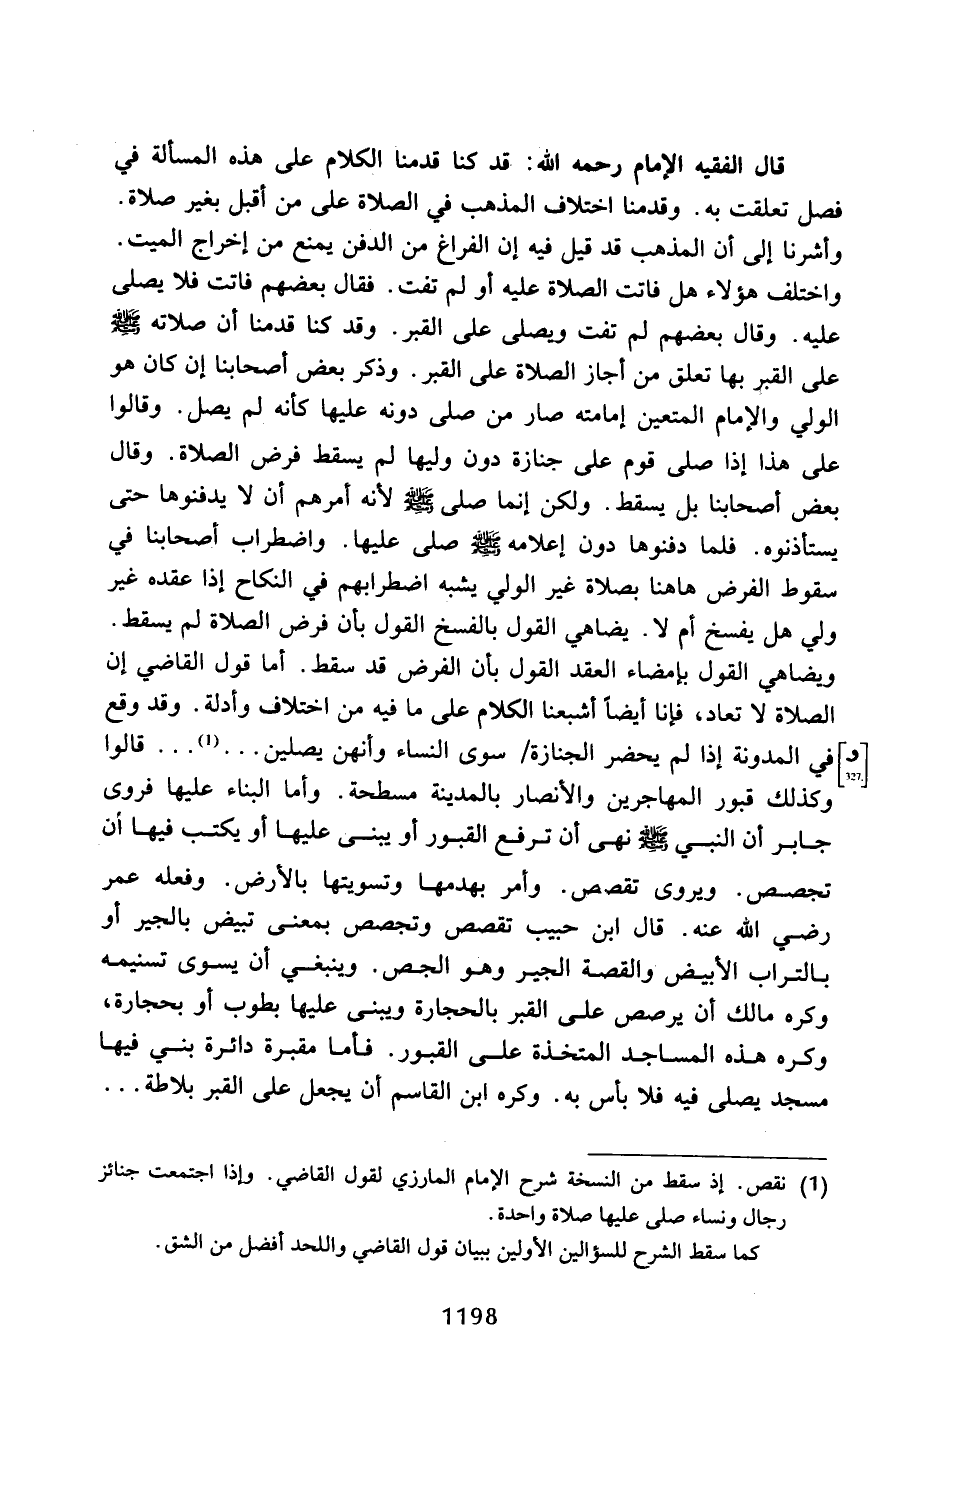 قال الفقيه الإمام رحمه الله: قد كنا قدمنا الكلام على هذه المسألة في
فصل تعلقت به. وقدمنا اختلاف المذهب في الصلاة على من أقبل بغير صلاة.
وأشرنا إلى أن المذهب قد قيل فيه إن الفراغ من الدفن يمنع من إخراج الميت.
واختلف هؤلاء هل فاتت الصلاة عليه أو لم تفت. فقال بعضهم فاتت فلا يصلى
عليه. وقال بعضهم لم تفت ويصلى على القبر. وقد كنا قدمنا أن صلاته ﷺ
على القبر بها تعلق من أجاز الصلاة على القبر. وذكر بعض أصحابنا إن كان هو
الولي والإمام المتعين إمامته صار من صلى دونه عليها كأنه لم يصل. وقالوا
على هذا إذا صلى قوم على جنازة دون وليها لم يسقط فرض الصلاة. وقال
بعض أصحابنا بل يسقط. ولكن إنما صلى ﷺ لأنه أمرهم أن لا يدفنوها حتى
يستأذنوه. فلما دفنوها دون إعلامه ﷺ صلى عليها. واضطراب أصحابنا في
سقوط الفرض هاهنا بصلاة غير الولي يشبه اضطرابهم في النكاح إذا عقده غير
ولي هل يفسخ أم لا. يضاهي القول بالفسخ القول بأن فرض الصلاة لم يسقط.
ويضاهي القول بإمضاء العقد القول بأن الفرض قد سقط. أما قول القاضي إن
الصلاة لا تعاد، فإنا أيضاً أشبعنا الكلام على ما فيه من اختلاف وأدلة. وقد وقع
[و 327] في المدونة إذا لم يحضر الجنازة/ سوى النساء وأنهن يصلين...(1)... قالوا
وكذلك قبور المهاجرين والأنصار بالمدينة مسطحة. وأما البناء عليها فروى
جابر أن النبي ﷺ نهى أن ترفع القبور أو يبنى عليها أو يكتب فيها أن
تجصص. ويروى تقصص. وأمر بهدمها وتسويتها بالأرض. وفعله عمر
رضي الله عنه. قال ابن حبيب تقصص وتجصص بمعنى تبيض بالجير أو
بالتراب الأبيض والقصة الجير وهو الجص. وينبغي أن يسوى تسنيمه
وكره مالك أن يرصص على القبر بالحجارة ويبنى عليها بطوب أو بحجارة،
وكره هذه المساجد المتخذة على القبور. فأما مقبرة دائرة بني فيها
مسجد يصلى فيه فلا بأس به. وكره ابن القاسم أن يجعل على القبر بلاطة...
(1) نقص. إذ سقط من النسخة شرح الإمام المارزي لقول القاضي. وإذا اجتمعت جنائز
رجال ونساء صلى عليها صلاة واحدة.
كما سقط الشرح للسؤالين الأولين ببيان قول القاضي واللحد أفضل من الشق.
1198